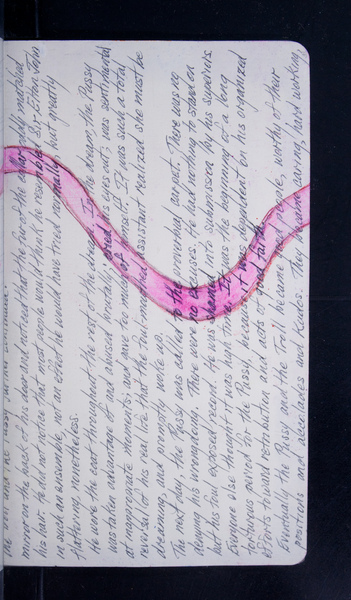 mirror on the back of his door and noticed that the fur of the coat nearly matched
his hair. He did not notice that most people would think he resembled Sir Elton John
in such an ensemble, not an effect he would have tried normally, but greatly
flattering, nonetheless.
He wore the coat throughout the rest of the dream. In the dream, the Pussy
was taken advantage of and abused brutally, cried his eyes out, was sentimental
at inappropriate moments, and gave too much of himself. It was such a total
reversal of his real life that the foul-mouthed assistant realized she must be
dreaming, and promptly woke up.
The next day the Pussy was called to the proverbial carpet. There was no
denying his wrongdoing. There were no excuses. He had nothing to stand on
but his foul exposed record. He was shamed into submission by his superiors.
Everyone else thought it was high time. It was the beginning of a long
torturous period for the Pussy, because it was dependent on his organized
efforts toward retribution and acts of good faith.
Eventually the Pussy and the Troll became good people, worthy of their
positions and accolades and Kudos. They became caring, hard working,